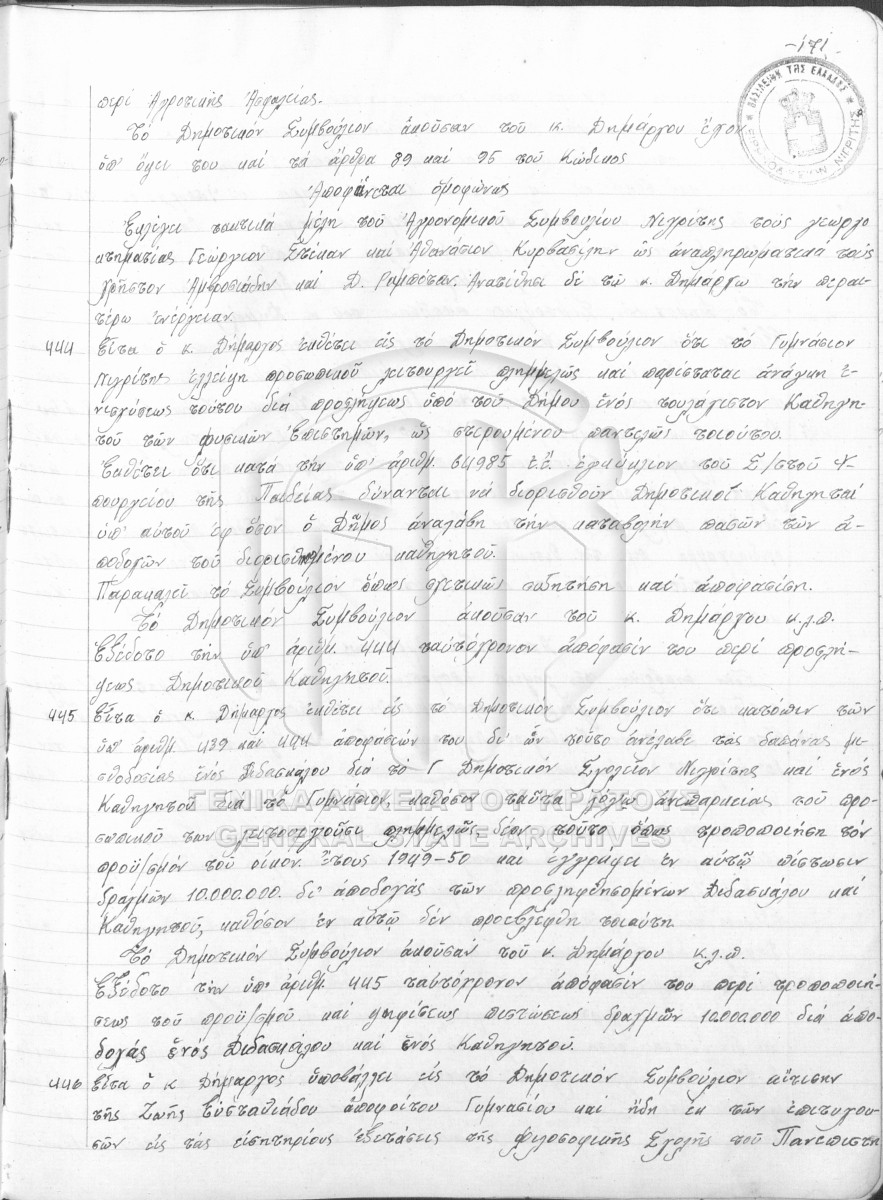 -171-
ΒΑΣΙΛΕΙΟΝ ΤΗΣ ΕΛΛΑΔΟΣ
ΝΙΓΡΙΤΗΣ
περί Αγροτικής Ασφαλείας.
Τό Δημοτικόν Συμβούλιον ἀκοῦσαν τοῦ κ. Δημάρχου ἔχον
ὑπ' ὄψει του καί τά ἄρθρα 89 καί 95 τοῦ Κώδικος
Αποφαίνεται ὁμοφώνως
Εκλέγει τακτικά μέλη τοῦ Ἀγρονομικοῦ Συμβουλίου Νιγρίτης τούς γεωργο
κτηματίας Γεώργιον Στίκαν καί Ἀθανάσιον Κυρβασίλην ὡς ἀναπληρωματικά τούς
Χρῆστον Ἀμβροσιάδην καί Δ. Ραμπόταν. Ἀνατίθησι δέ τῶ κ. Δημάρχω τήν περαι-
τέρω ἐνέργειαν.
444 Εἶτα ὁ κ. Δήμαρχος ἐκθέτει εἰς τό Δημοτικόν Συμβούλιον ὅτι τό Γυμνάσιον
Νιγρίτης ἐλλείψη προσωπικοῦ λειτουργεῖ πλημμελῶς καί παρίσταται ἀνάγκη ἐ-
νισχύσεως τούτου διά προσλήψεως ὑπό τοῦ Δήμου ἑνός τουλάχιστον Καθηγη-
τοῦ τῶν φυσικῶν Ἐπιστημῶν, ὡς στερουμένου παντελῶς τοιούτου.
Ἐκθέτει ὅτι κατά τήν ὑπ' ἀριθμ. 64985 ἐ.ἔ. ἐγκύκλιον τοῦ Σ/στοῦ Ὑ-
πουργείου τῆς Παιδείας δύνανται νά διορισθοῦν Δημοτικοί Καθηγηταί
ὑπ' αὐτοῦ ἐφ ὅσον ὁ Δῆμος ἀναλάβη τήν καταβολήν πασῶν τῶν ἀ-
ποδοχῶν τοῦ διορισθησομένου καθηγητοῦ.
Παρακαλεῖ τό Συμβούλιον ὅπως σχετικῶς συζητήση καί ἀποφασίση.
Τό Δημοτικόν Συμβούλιον ἀκοῦσαν τοῦ κ. Δημάρχου κ.λ.π.
Ἐξέδοτο τήν ὑπ' ἀριθμ. 444 ταὐτόχρονον ἀπόφασίν του περί προσλή-
ψεως Δημοτικοῦ Καθηγητοῦ.
445 Εἶτα ὁ κ. Δήμαρχος ἐκθέτει εἰς τό Δημοτικόν Συμβούλιον ὅτι κατόπιν τῶν
ὑπ' ἀριθμ. 439 καί 444 ἀποφασεών του δι' ὧν τοῦτο ἀνέλαβε τάς δαπάνας μι-
σθοδοσίας ἑνός Διδασκάλου διά τό Γ Δημοτικόν Σχολεῖον Νιγρίτης καί ἑνός
Καθηγητοῦ διά τό Γυμνάσιον, καθόσον ταῦτα λόγω ἀνεπαρκείας τοῦ προ-
σωπικοῦ των λειτουργοῦσι πλημμελῶς, δέον τοῦτο ὅπως τροποποιήση τόν
προϋ/σμόν τοῦ οἰκον. ἔτους 1949-50 καί ἐγγράψει ἐν αὐτῷ πίστωσιν
δραχμῶν 10.000.000. δι' ἀποδοχάς τῶν προσληφθησομένων Διδασκάλου καί
Καθηγητοῦ, καθόσον ἐν αὐτῷ δέν προεβλέφθη τοιαύτη.
Τό Δημοτικόν Συμβούλιον ἀκοῦσαν τοῦ κ. Δημάρχου κ.λ.π.
Ἐξέδοτο τήν ὑπ' ἀριθμ. 445 ταὐτόχρονον ἀπόφασίν του περί τροποποιή-
σεως τοῦ προϋ/σμοῦ καί ψηφίσεως πιστώσεως δραχμῶν 10.000.000 διά ἀπο-
δοχάς ἑνός Διδασκάλου καί ἑνός Καθηγητοῦ.
446 Εἶτα ὁ κ Δήμαρχος ὑποβάλλει εἰς τό Δημοτικόν Συμβούλιον αἴτισην
τῆς Ζωῆς Εὐσταθιάδου ἀποφοίτου Γυμνασίου καί ἤδη ἐκ τῶν ἐπιτυχου-
σῶν εἰς τάς εἰσητηρίους ἐξετάσεις τῆς Φιλοσοφικῆς Σχολῆς τοῦ Πανεπιστη
ΓΕΝΙΚΑ ΑΡΧΕΙΑ ΤΟΥ ΚΡΑΤΟΥΣ
GENERAL STATE ARCHIVES